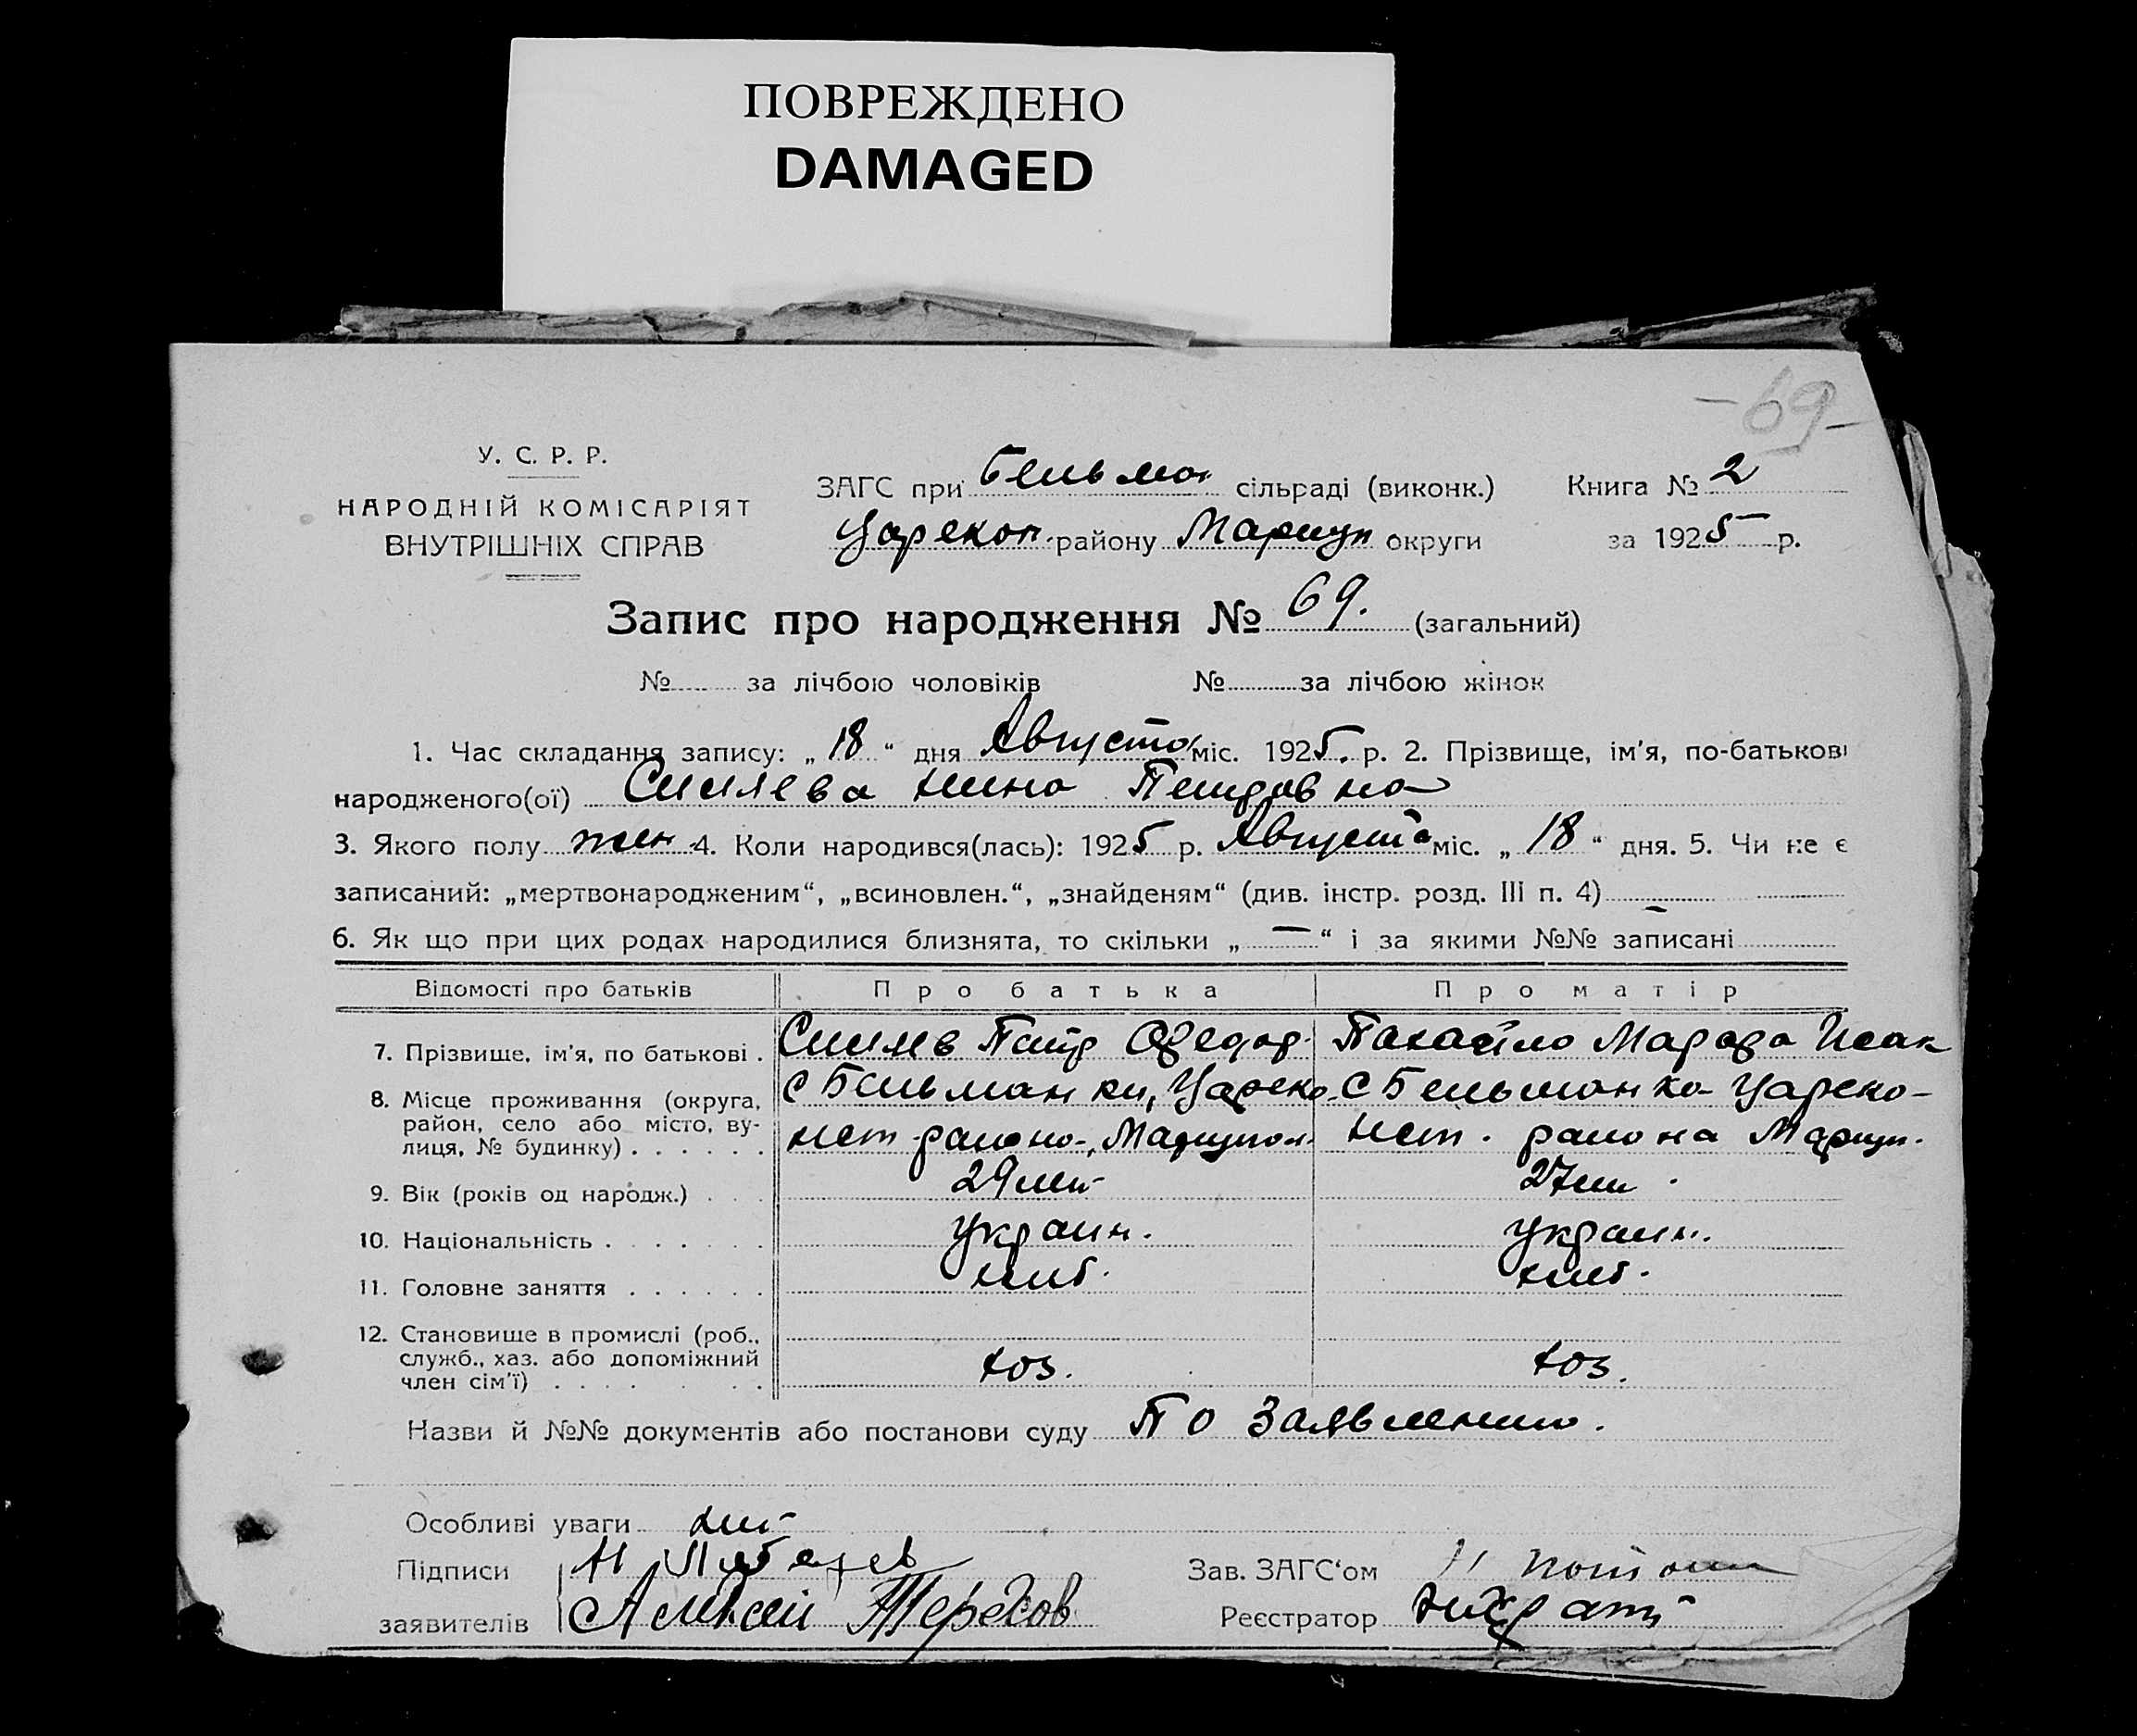 ПОВРЕЖДЕНО
DAMAGED
-69-
У. С. Р. Р.
НАРОДНІЙ КОМІСАРІЯТ
ВНУТРІШНІХ СПРАВ
ЗАГС при Бельман сільраді (виконк.) Книга № 2
Царекон. району Мариуп. округи за 1925 р.
Запис про народження № 69. (загальний)
№ за лічбою чоловіків № за лічбою жінок
1. Час складання запису: „ 18 “ дня Августа міс. 1925. р. 2. Прізвище, ім'я, по-батькові
народженого(ої) Нина Петровна
3. Якого полу жен. 4. Коли народився(лась): 1925 р. Августа міс. „ 18 “ дня. 5. Чи не є
записаний: „мертвонародженим“, „всиновлен.“, „знайденям“ (див. інстр. розд. III п. 4) –
6. Як що при цих родах народилися близнята, то скільки „ — “ і за якими №№ записані
Відомості про батьків Про батька Про матір
7. Прізвище, ім'я, по батькові . Петр Федор. Исак
8. Місце проживання (округа, с Бельманки, Цареко- с Бельманка Цареко-
район, село або місто, ву-
лиця, № будинку) . . . . . . нст района, Мариупол. нст. района Мариуп.
9. Вік (років од народж.) . . . 29 лет 27 лет
10. Національність . . . . . . . украин. украин.
11. Головне заняття . . . . . . хлеб. хлеб.
12. Становище в промислі (роб.,
служб., хаз. або допоміжний хоз. хоз.
член сім'ї) . . . . . . .
Назви й №№ документів або постанови суду По заявлению.
Особливі уваги нет
Підписи Зав. ЗАГС‘ом
заявителів Алексей Терехов Реєстратор